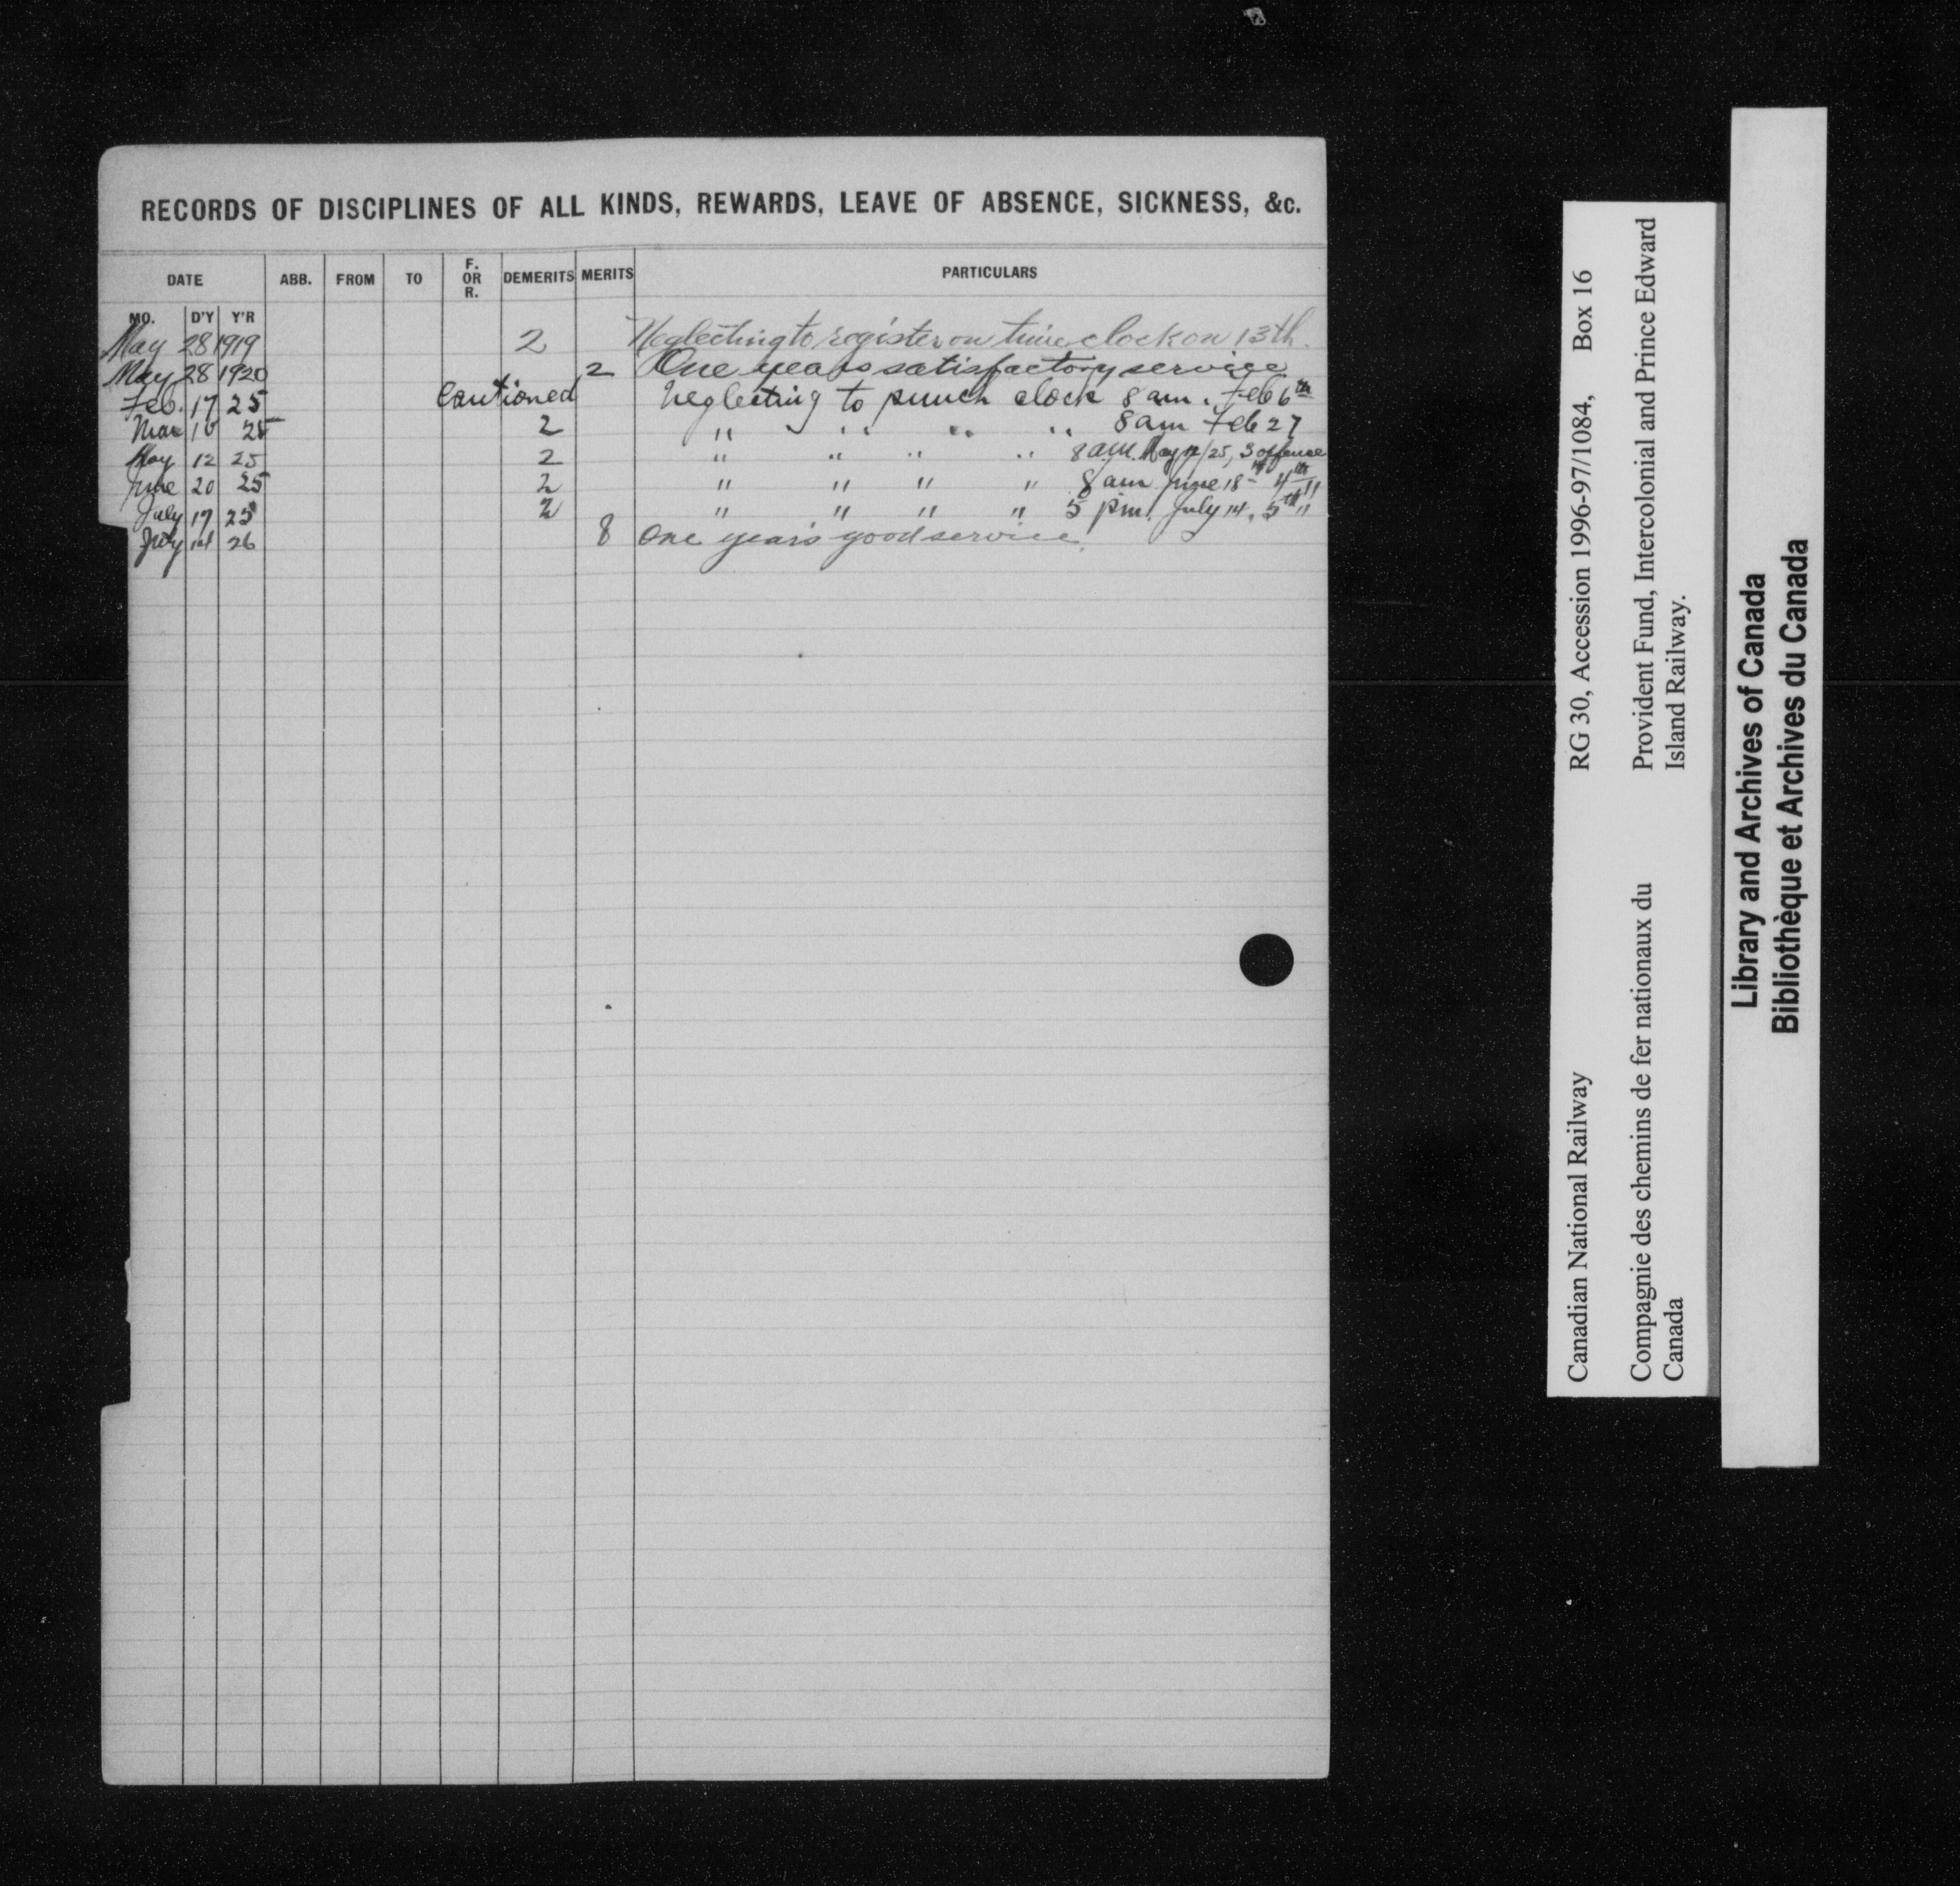 RECORDS OF DISCIPLINES OF ALL KINDS, REWARDS, LEAVE OF ABSENCE, SICKNESS, &c.
DATE ABB. FROM TO F. OR R. DEMERITS MERITS PARTICULARS
MO. D'Y Y'R
May 28 1919 2 Neglecting to register on time clock on 13th.
May 28 1920 2 One years satisfactory service
Feb. 17 25 Cautioned Neglecting to punch clock 8 am. Feb 6th
Mar 25 2 " " " " 8 am Feb 27
May 12 25 2 " " " " 8 a.m. May 12/25, 3 offence
June 20 25 2 " " " " 8 am June 18th 4th "
July 17 25 2 " " " " 5 pm. July 14, 5th "
July 14 26 8 One year's good service.
Canadian National Railway RG 30, Accession 1996-97/1084, Box 16
Compagnie des chemins de fer nationaux du Provident Fund, Intercolonial and Prince Edward
Canada Island Railway.
Library and Archives of Canada
Bibliothèque et Archives du Canada